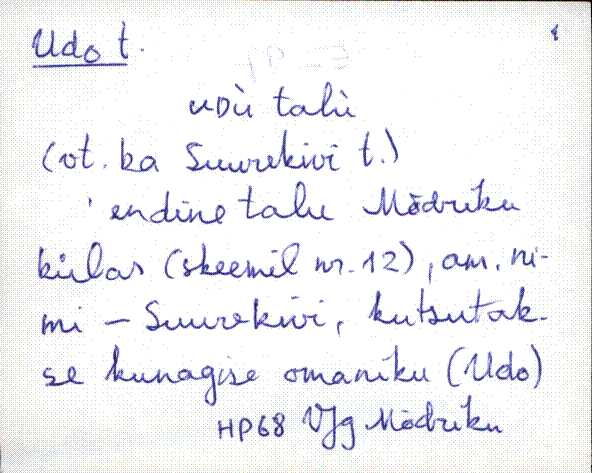 Udo t.
uDù talù
(vt. ka Suurekivi t.)
endine talu Mõdriku
külas (skeemil nr. 12), am. ni-
mi – Suurekivi, kutsutak-
se kunagise omaniku (Udo)
HP68 VJg Mõdriku